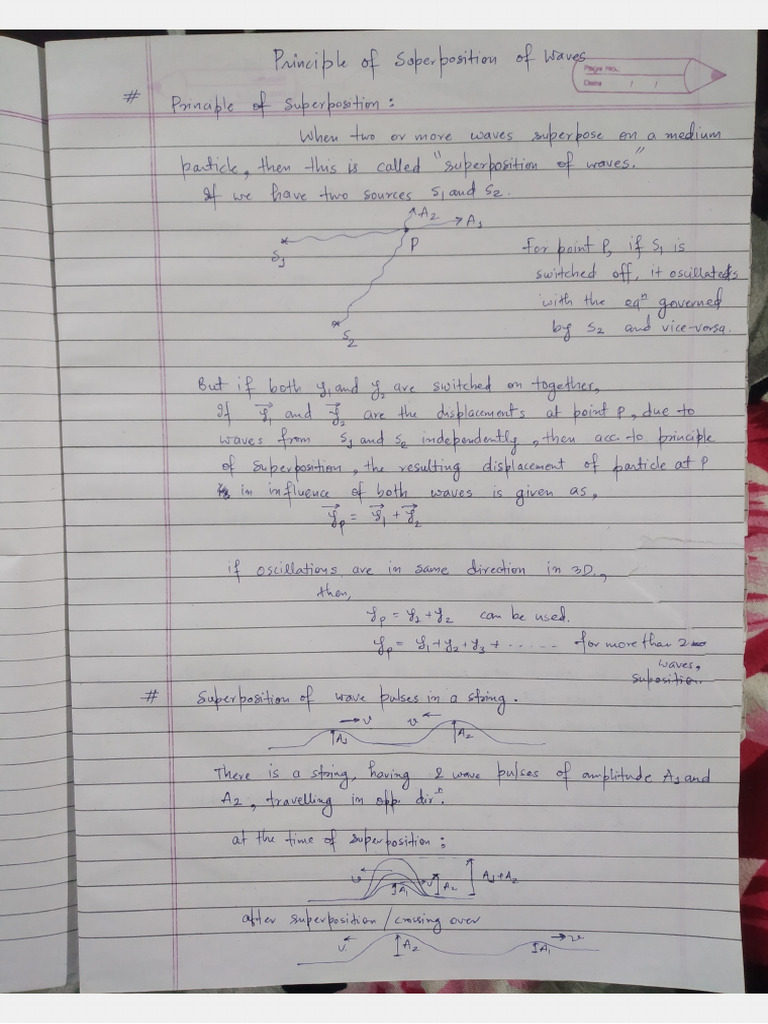 Principle of Superposition of Waves
Page No.
Date / /
# Principle of Superposition :
When two or more waves superpose on a medium
particle, then this is called "superposition of waves."
If we have two sources S1 and S2.
A2
A1
S1
P
S2
For point P, if S1 is
switched off, it oscillates
with the eqn governed
by S2 and vice-versa.
But if both y1 and y2 are switched on together,
If y⃗1 and y⃗2 are the displacements at point P, due to
waves from S1 and S2 independently, then acc. to principle
of superposition, the resulting displacement of particle at P
in influence of both waves is given as,
y⃗p = y⃗1 + y⃗2
if oscillations are in same direction in 3D.,
then,
yp = y1 + y2 can be used.
yp = y1 + y2 + y3 + ...... for more than 2
waves,
suposition.
# Superposition of wave pulses in a string.
v v
A1 A2
There is a string, having 2 wave pulses of amplitude A1 and
A2, travelling in opp. dirn.
at the time of superposition :
v A1 v A2 A1+A2
after superposition / crossing over
v A2 A1 v